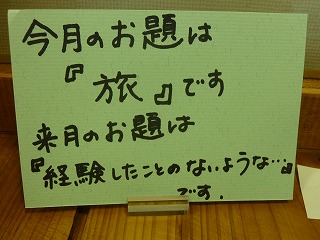 今月のお題は
『旅』です
来月のお題は
『経験したことのないような…』
です.